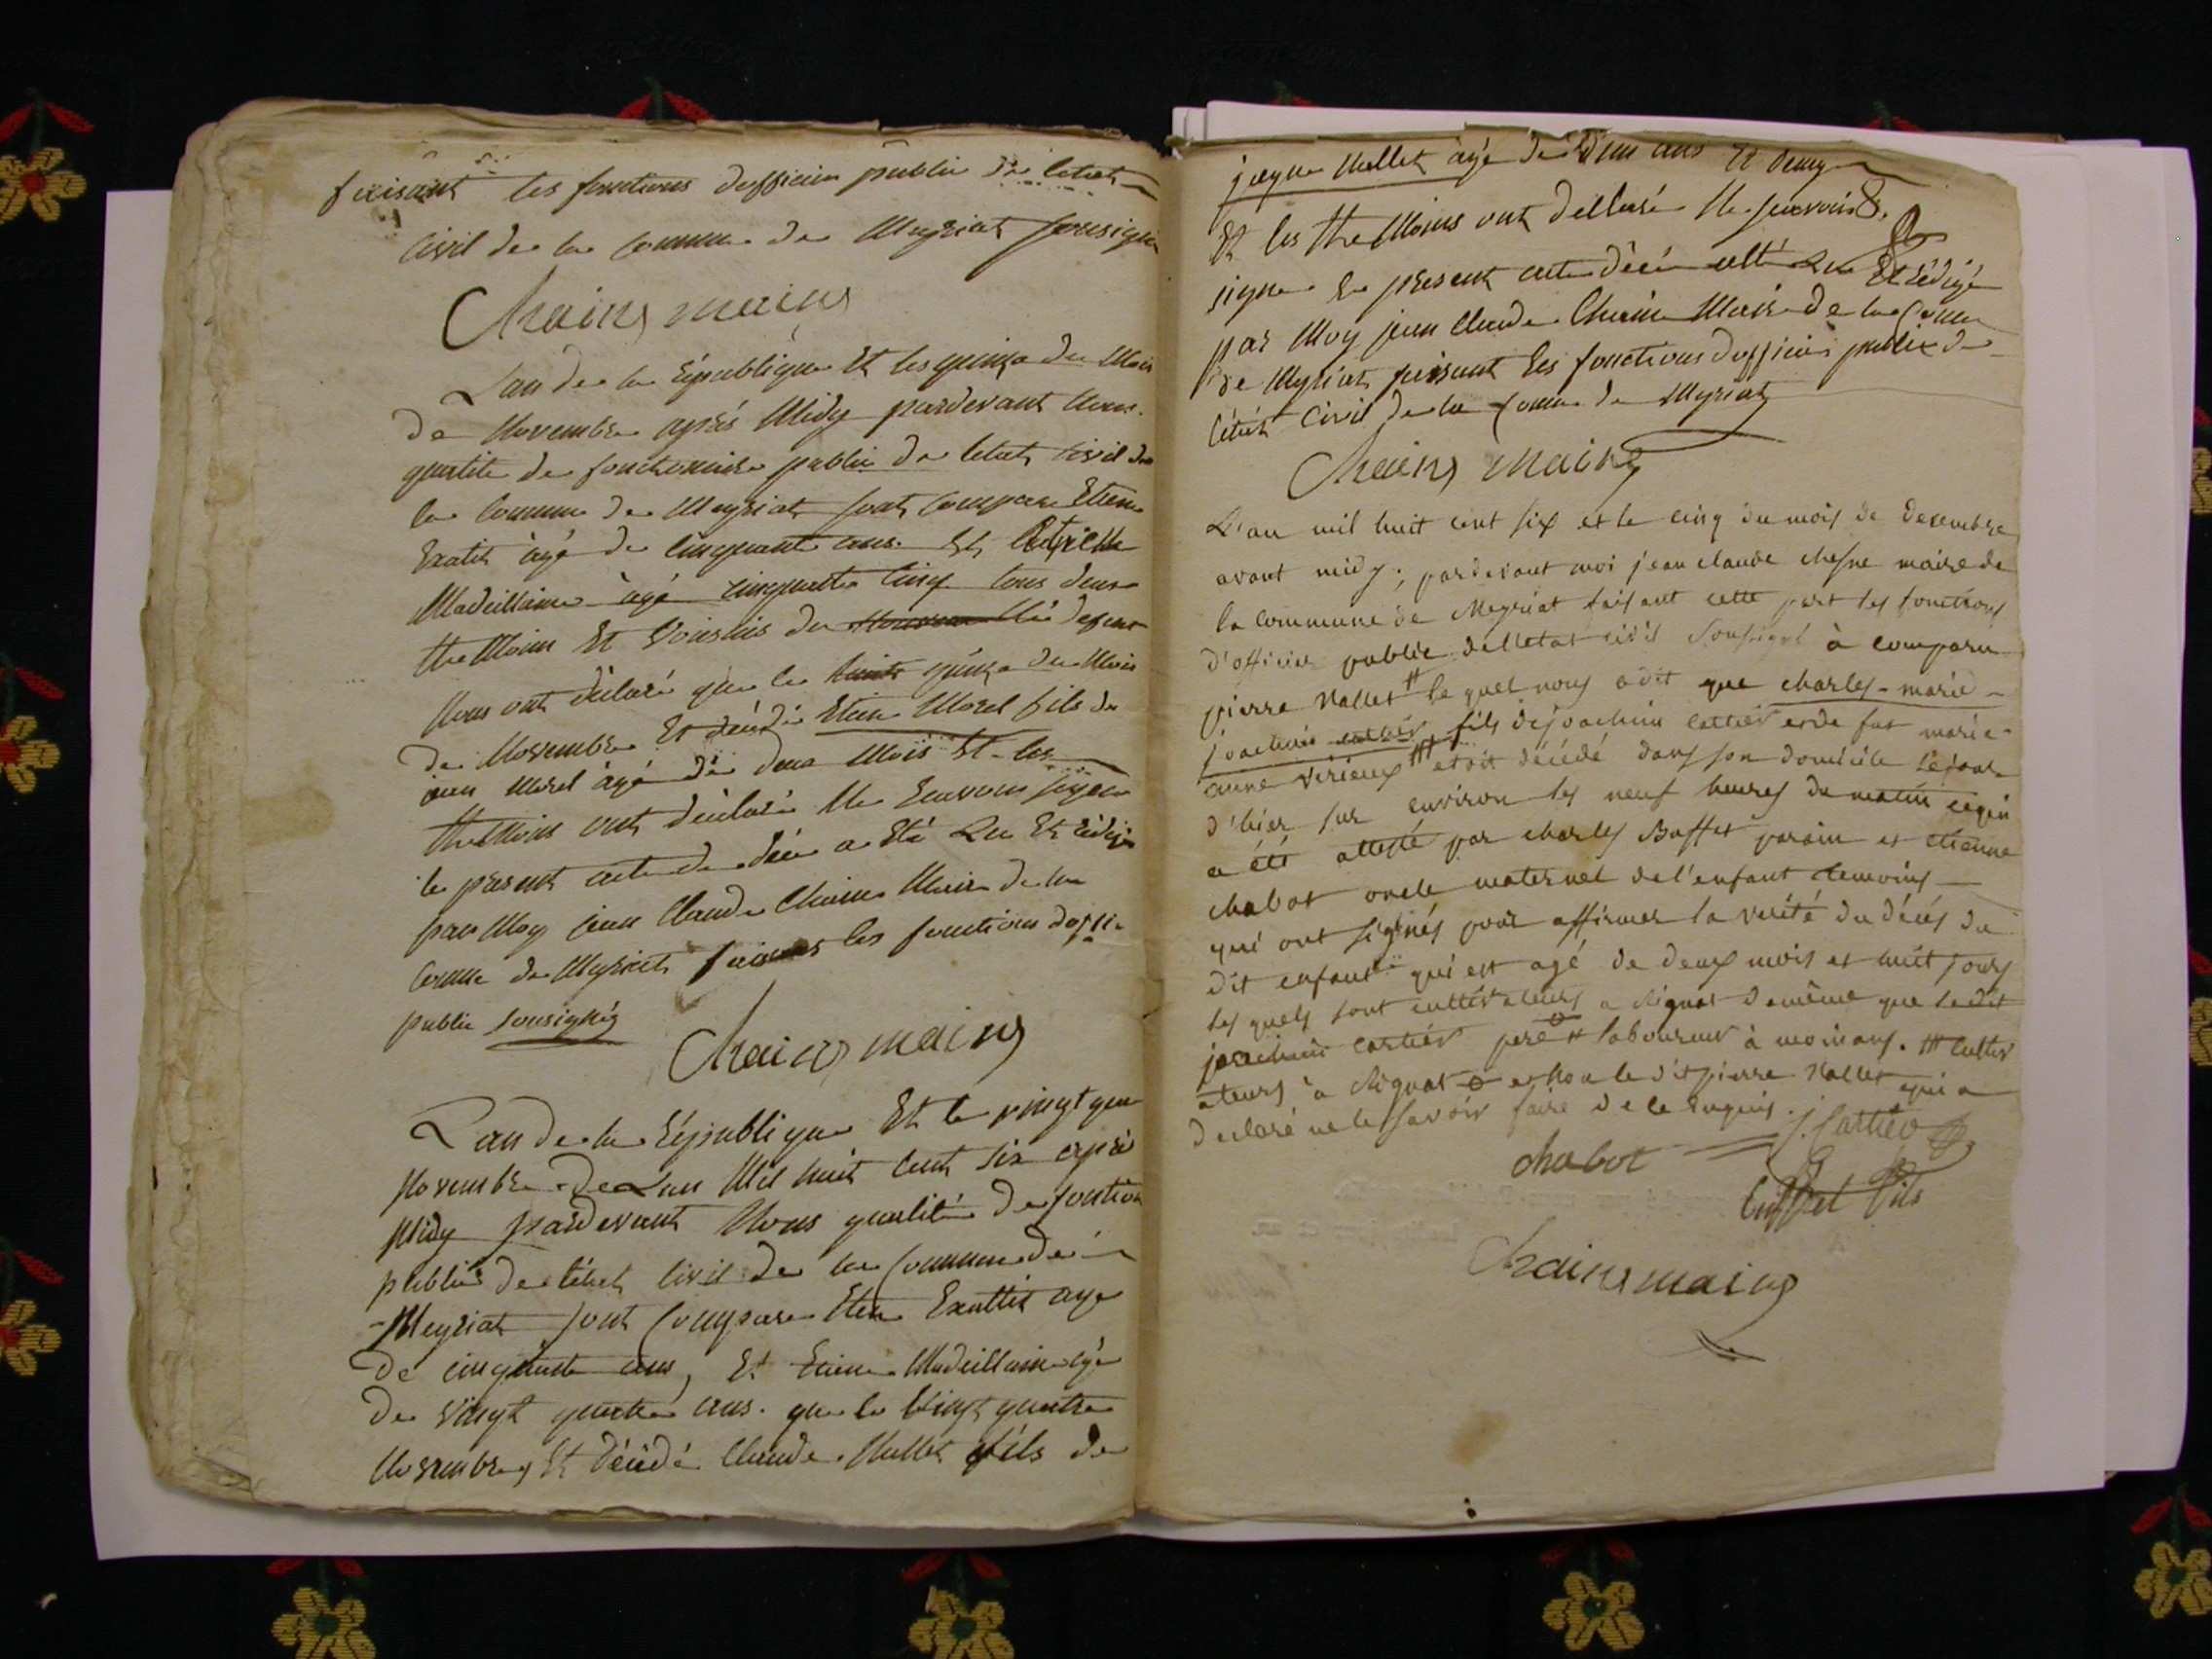 faisant les fonctions dofficier public de letat
Civil de la commune de Meyriat sousigne
Chaine maire
Lan de la Republique Et les quinze du Mois
de Novembre aprés Midy pardevant Nous
qualite de fonctionaire public de letat civil de
la commune de Meyriat sont compare Etiene
âgé de cinquante ans. Et
âgé cinquante cinq tous deux
the Moins Et Voisins du
Nous ont déclaré que le quinze du Mois
de Novembre Et décédé Etiene Morel fils de
Morel âgé de deux Mois Et les
theMoins ont déclaré Ne Scavoir signe
le present acte de décé a Eté Lu Et Rédigé
par Moy jean Claude Chaine Maire de la
Comune de Meyriat faisant les fonctions doffi
public sousignés
Chaine maire
Lan de la Republique Et le vingt quatre
Novembre De Lan Mil huit cent six aprés
Midy pardevant Nous qualité de fontion
publié de létat Civil de la Commune de
Meyriat sont Compare Etiene age
de cinquante ans, Et Etiene agé
de vingt quatre ans. que le Vingt quatre
Novembre, Et décédé Claude Nallet fils de
jaque Nallet âgé de deux ans Et demy
Et les the Moins ont declaré Ne scavoir
signe Le present acte décé atté Lu Et Rédigé
par Moy jean Claude Chaine Maire de la Comune
De Meyriat faisant les fonctions dofficier public de
létat Civil de la Comune de Meyriat
Chaine maire
L'an mil huit cent six et le cinq du mois de decembre
avant midy; pardevant moi jean claude chesne maire de
la commune de Meyriat faisant cette part les fonctions
d'officier public delletat civil Sousigné à comparu
pierre Nallet # le quel nous a dit que charles-marie-
joachim cartier fils de joachim cartier et de fut marie-
anne # etoit décédé dans son domicile le jour
d'hier sur environ les neuf heures du matin ce qui
a été attesté par charles Buffet parain et etienne
chabot oncle maternel de l'enfant temoins
qui ont signés pour affirmer la verité du décés du
dit enfant qui est agé de deux mois et huit jours
les quels sont cultivateurs a Rignat de même que le dit
joachim cartier pere # laboureur à moinans. # cultiv
ateurs à Rignat et non le dit pierre Nallet qui a
declaré ne le savoir faire de ce enquis.
j. Cartier
chabot
buffet fils
Chaine maire